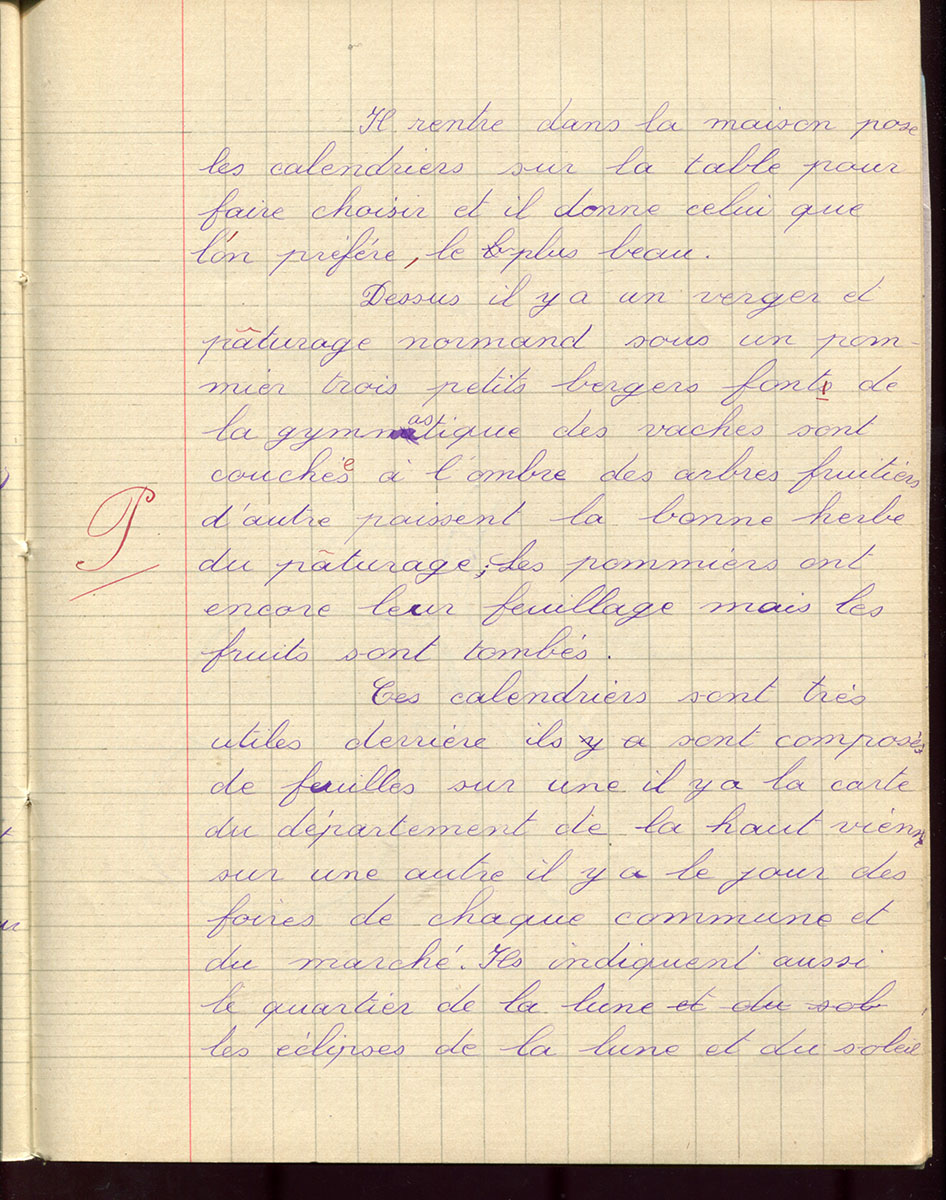 Il rentre dans la maison pose
les calendriers sur la table pour
faire choisir et il donne celui que
l'on préfére, le b plus beau.
Dessus il y a un verger et
pâturage normand sous un pom-
mier trois petits bergers fonts de
la gymnastique des vaches sont
couchées à l'ombre des arbres fruitiers
d'autre paissent la bonne herbe
P
du pâturage; Les pommiers ont
encore leur feuillage mais les
fruits sont tombés.
Ces calendriers sont très
utiles derrière ils y a sont composés
de feuilles sur une il y a la carte
du département de la haut vienne
sur une autre il y a le jour des
foires de chaque commune et
du marché. Ils indiquent aussi
le quartier de la lune et du sol,
les éclipses de la lune et du soleil